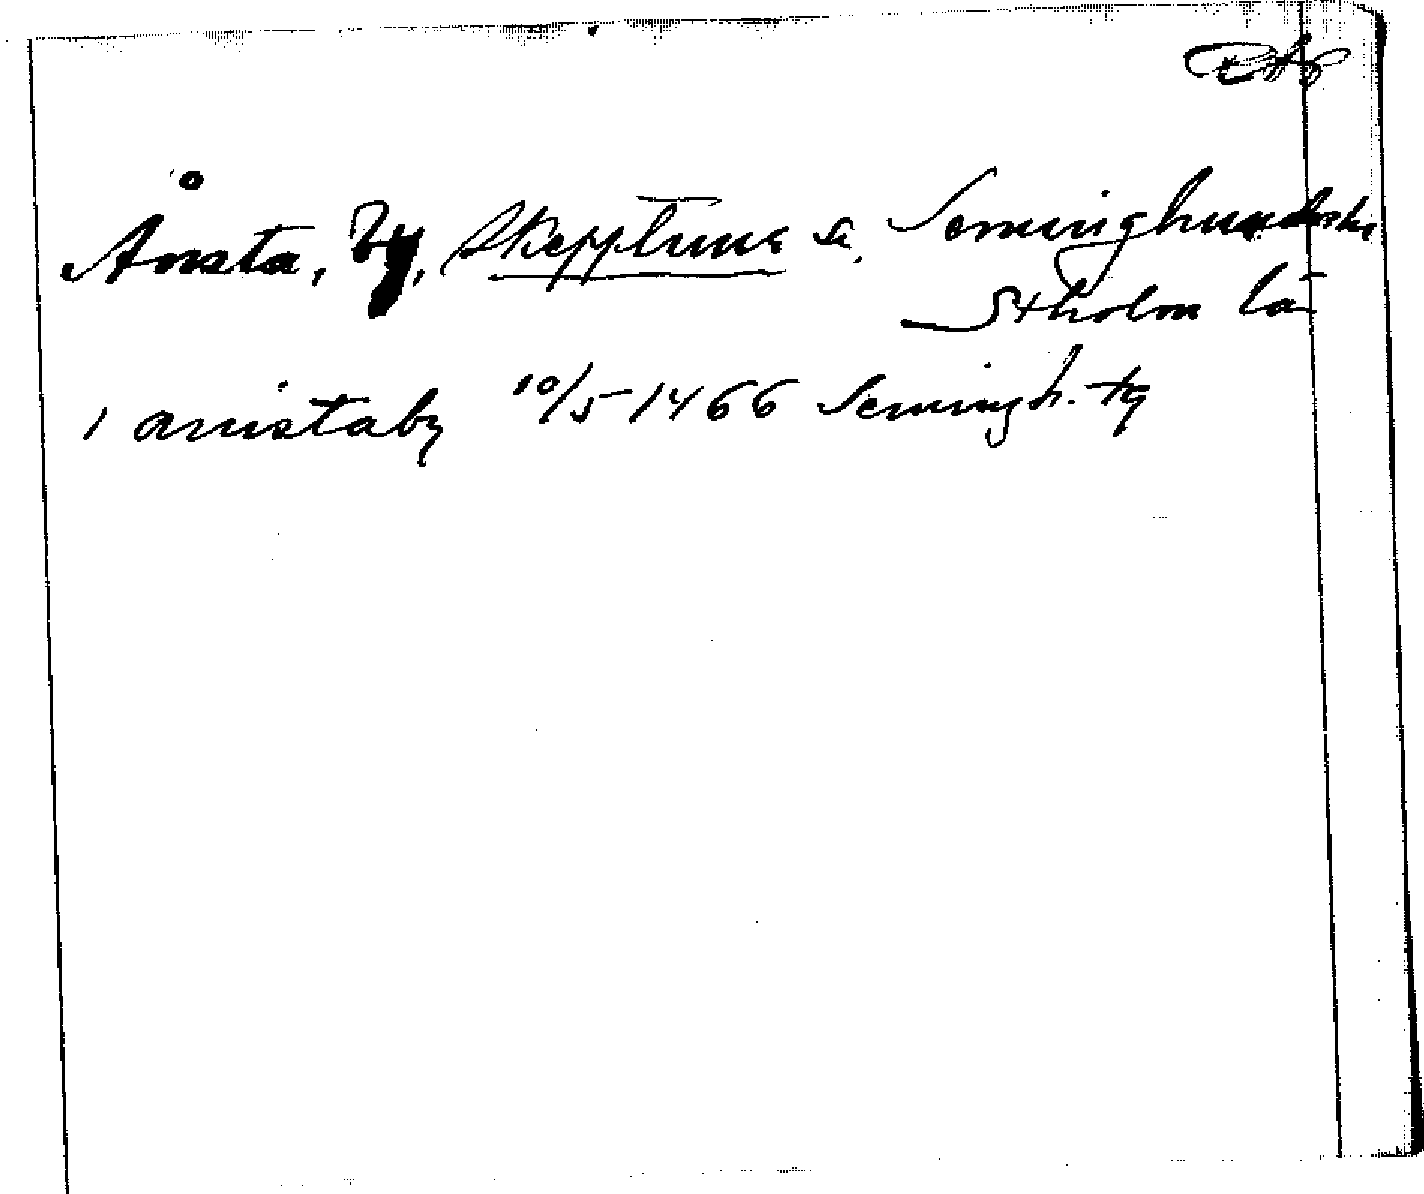 RAp
Ånsta, by, Skepptuna sn, Seminghundra hd
Stholm lä
i anistaby 10/5 1466 Semingh. tg